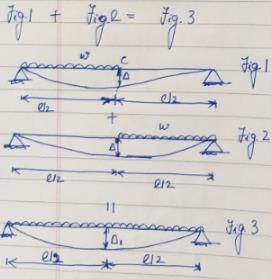 Fig.1 + Fig.2 = Fig.3
w C Fig.1
Δ
l/2 l/2
+
w Fig.2
Δ
l/2 l/2
=
Fig 3
Δ₁
l/2 l/2